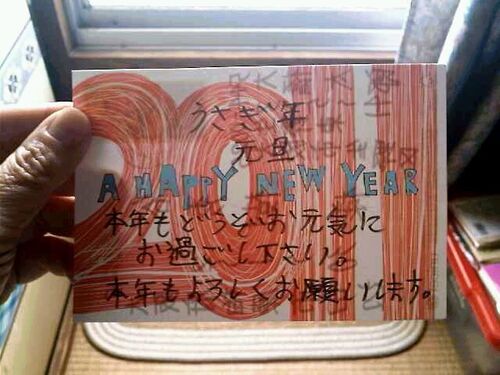 2011
うさぎ年
元旦
A HAPPY NEW YEAR
本年もどうぞお元気に
お過ごし下さい。
本年もよろしくお願いします。